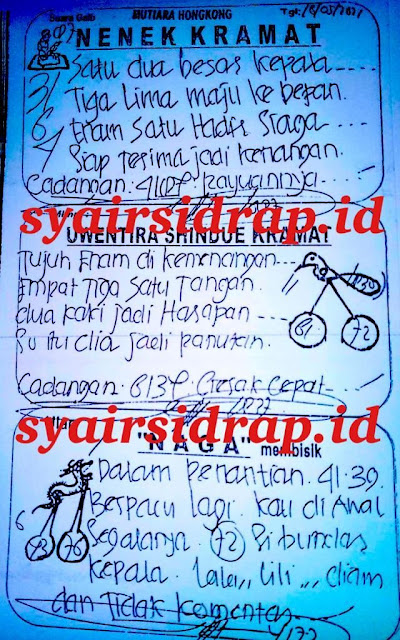 Suara Gaib MUTIARA HONGKONG Tgl:
NENEK KRAMAT
Satu dua besar kepala
Tiga Lima maju ke depan.
Enam Satu Hadir Siaga
Siap terima jadi kenangan.
Cadangan
syairsidrap.id
UWENTIRA SHINDUE KRAMAT
Tujuh Enam di kemenangan
Empat Tiga Satu Tangan.
dua kaki jadi Harapan
72
Cadangan Gerak Cepat
syairsidrap.id
"NAGA" membisik
Dalam Penantian. 41.39.
Berpacu lagi. kau di Awal
Segalanya. 72
kepala. lala,, lili,,, diam
dan Tidak komentar